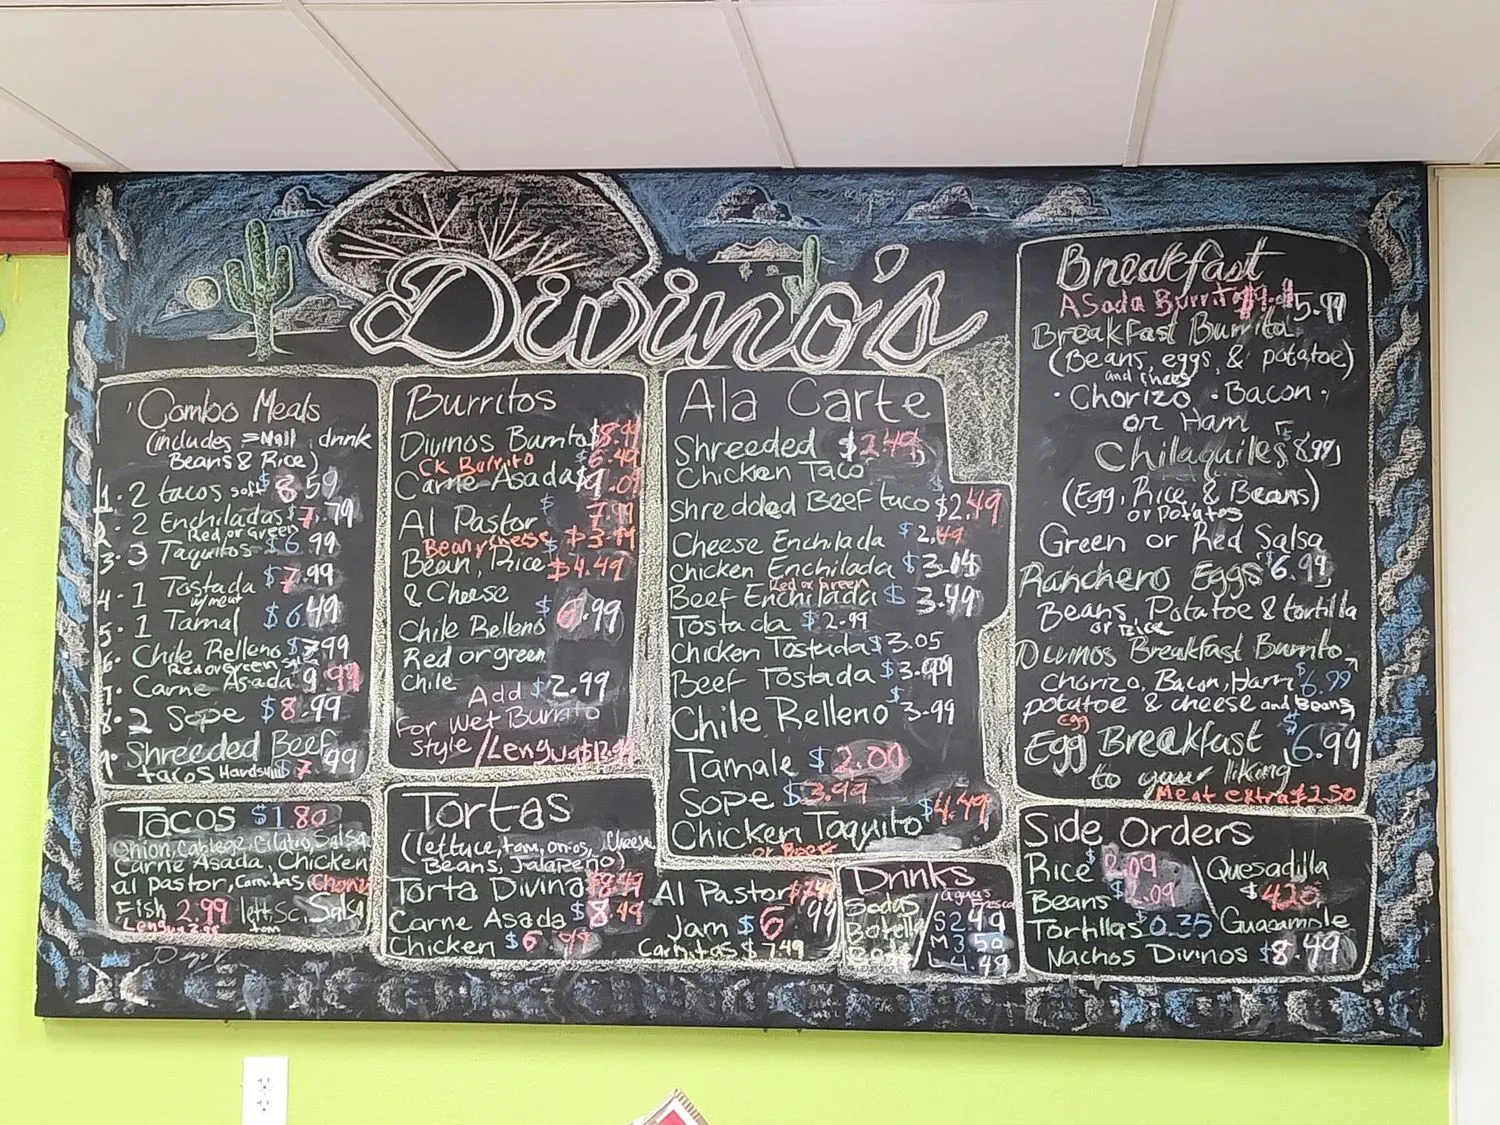 Divino's
Combo Meals
(includes small drink
Beans & Rice)
1. 2 tacos soft $8.59
2. 2 Enchiladas $7.79
Red or green
3. 3 Taquitos $6.99
4. 1 Tostada $7.99
w/meat
5. 1 Tamal $6.49
6. Chile Relleno $7.99
Red or green
7. Carne Asada 9.99
8. 2 Sope $8.99
9. Shreeded Beef
tacos Hardshell $7.99
Tacos $1.80
Onion, Cabbage, Cilatro, Salsa
Carne Asada, Chicken
al pastor, Carnitas, Chorizo
Fish 2.99 lett, Sc, Salsa
Lengua tom
Burritos
Divinos Burrito $8.99
CK Burrito $6.49
Carne Asada $9.09
Al Pastor $7.99
Bean y cheese
Bean, Rice $4.49
& Cheese
Chile Relleno $6.99
Red or green
chile
Add $2.99
For Wet Burrito
style / Lengua
Tortas
(lettuce, tom, onios, Cheese
Beans, Jalapeño)
Torta Divino $8.49
Carne Asada $8.49
Chicken $6.99
Al Pastor $7.49
Jam $6.99
Carnitas $7.49
Ala Carte
Shreeded $2.49
Chicken Taco
Shredded Beef taco $2.49
Cheese Enchilada $2.49
Chicken Enchilada $3.04
Red or green
Beef Enchilada $3.49
Tostada $2.99
Chicken Tostada $3.05
Beef Tostada $3.99
Chile Relleno $3.99
Tamale $2.00
Sope $3.99
Chicken Taquito $4.49
or Beef
Drinks
Sodas
Botella
Coffee
aguas fresca
S 2.49
M 3.50
L 4.49
Breakfast
Asada Burrito 5.99
Breakfast Burrito
(Beans, eggs, & potatoe)
and chees
· Chorizo · Bacon ·
or Ham
Chilaquiles 8.99
(Egg, Rice, & Beans)
or potatos
Green or Red Salsa
Ranchero Eggs $6.99
Beans, Potatoe & tortilla
or Rice
Divinos Breakfast Burrito
Chorizo, Bacon, Ham $6.99
potatoe & cheese and Beans
egg
Egg Breakfast $6.99
to your liking
Meat extra $2.50
Side Orders
Rice $2.09
Beans $2.09
Tortillas $0.35
Quesadilla
Guacamole
Nachos Divinos $8.49